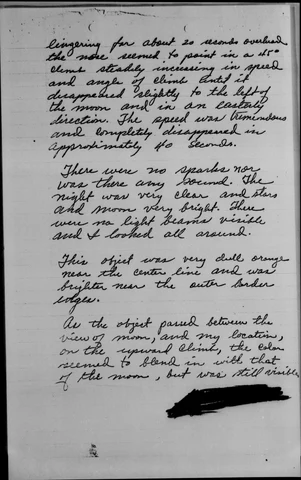 lingering for about 20 seconds overhead
the nose seemed to point in a 45°
climb steadily increasing in speed
and angle of climb until it
disappeared slightly to the left of
the moon and in an easterly
direction. The speed was tremendous
and completely disappeared in
approximately 40 seconds.
There were no sparks nor
was there any sound. The
night was very clear and stars
and moon very bright. There
were no light beams visible
and I looked all around.
This object was very dull orange
near the center line and was
brighter near the outer border
edges.
As the object passed between the
view of moon, and my location,
on the upward climb, the color
seemed to blend in with that
of the moon, but was still visible